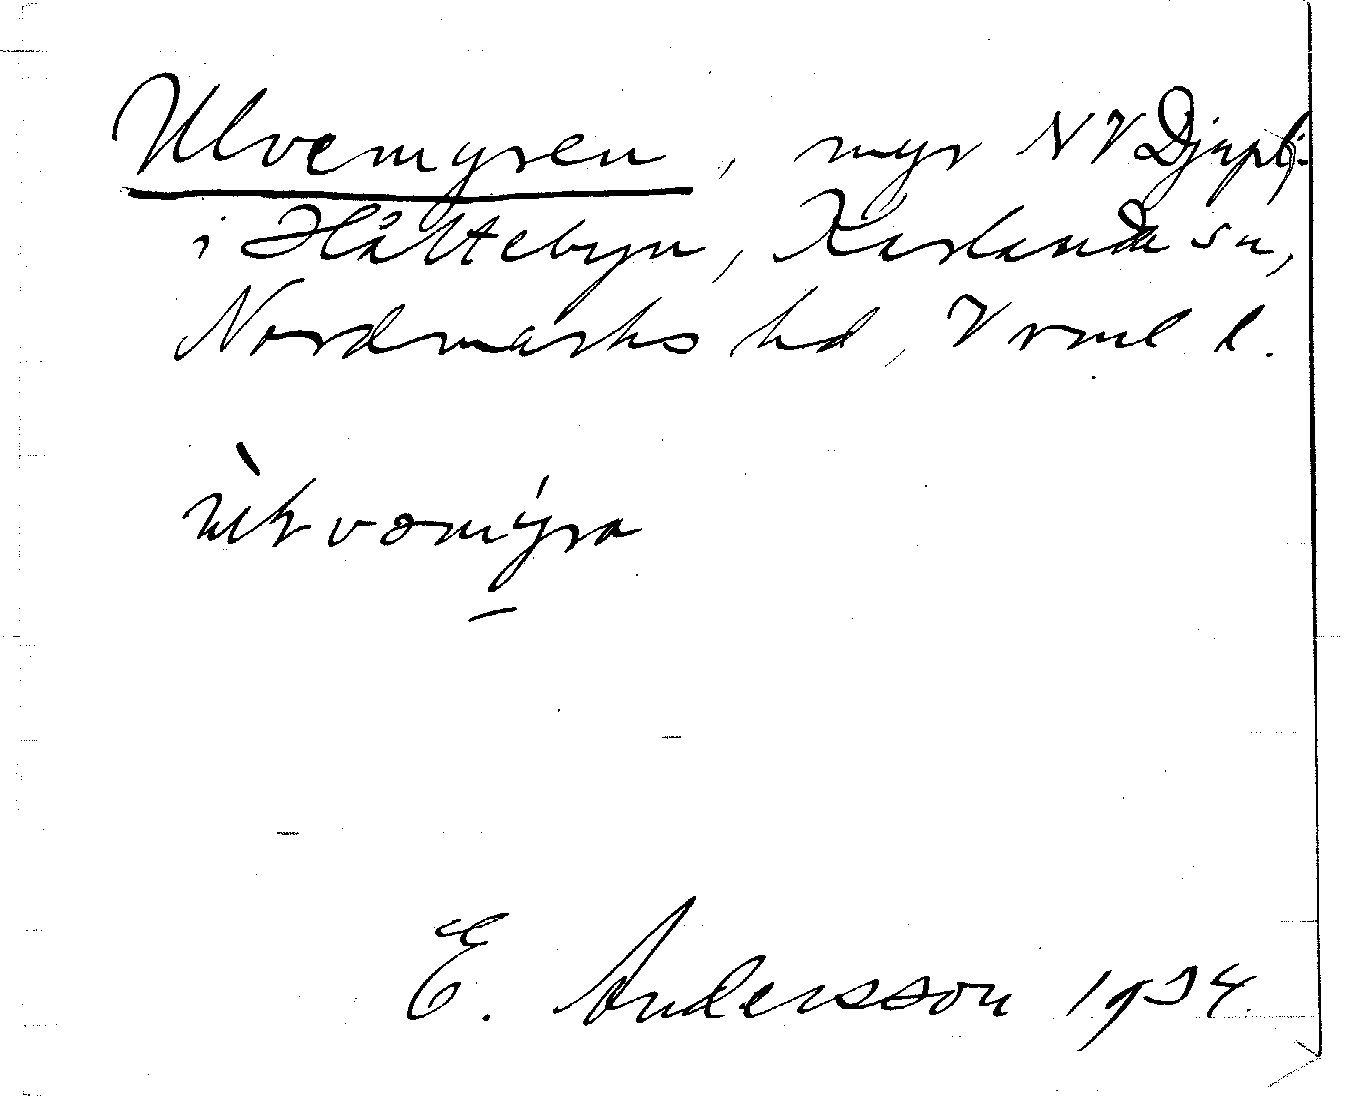 Ulvemyren, myr NV Djupbj.
i Håltebyn, Karlanda sn,
Nordmarks hd, Vrml l.
E. Andersson 1934.